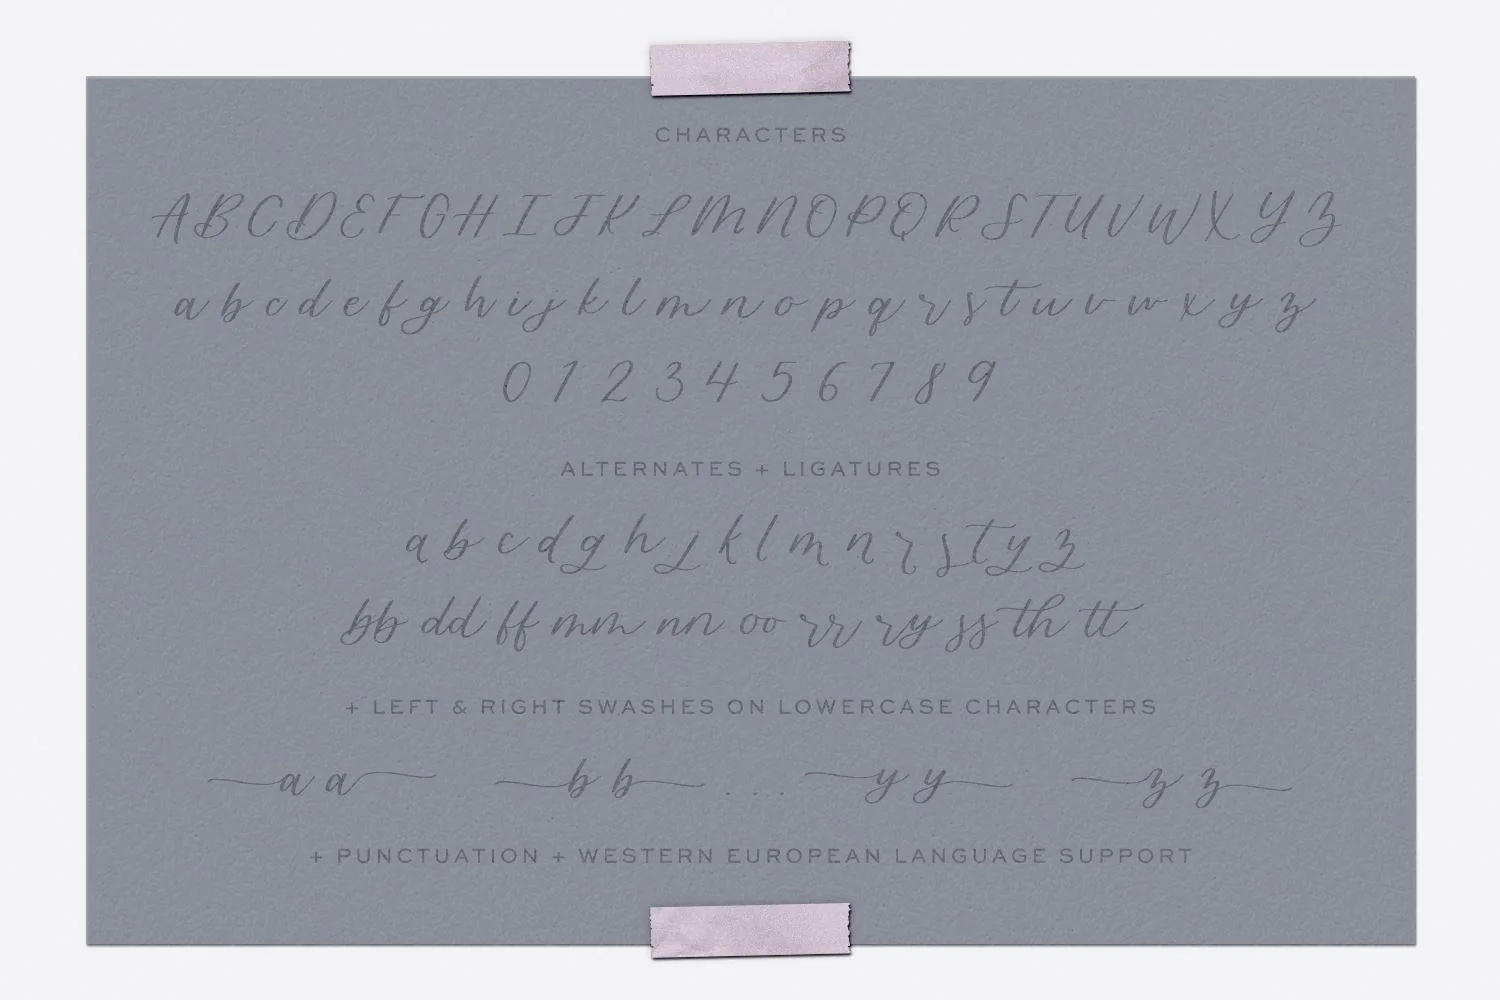 CHARACTERS
A B C D E F G H I J K L M N O P Q R S T U V W X Y Z
a b c d e f g h i j k l m n o p q r s t u v w x y z
0 1 2 3 4 5 6 7 8 9
ALTERNATES + LIGATURES
a b c d g h j k l m n r s t y z
bb dd ff mm nn oo rr ry ss th tt
+ LEFT & RIGHT SWASHES ON LOWERCASE CHARACTERS
a a b b . . . y y z z
+ PUNCTUATION + WESTERN EUROPEAN LANGUAGE SUPPORT